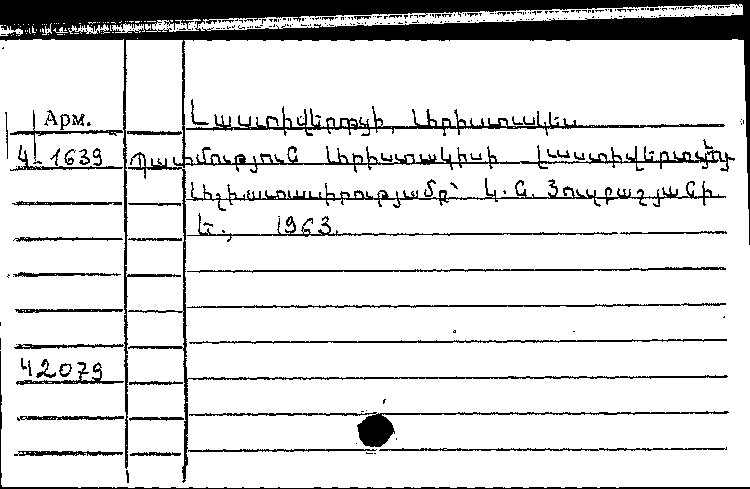 Арм.
Լաստիվերտցի, Արիստակես
4-1639 Պատմություն Արիստակիսի Լաստիվերտցւոյ
Աշխատասիրությամբ՝ Կ. Ն. Յուզբաշյանի
Ե., 1963.
42079